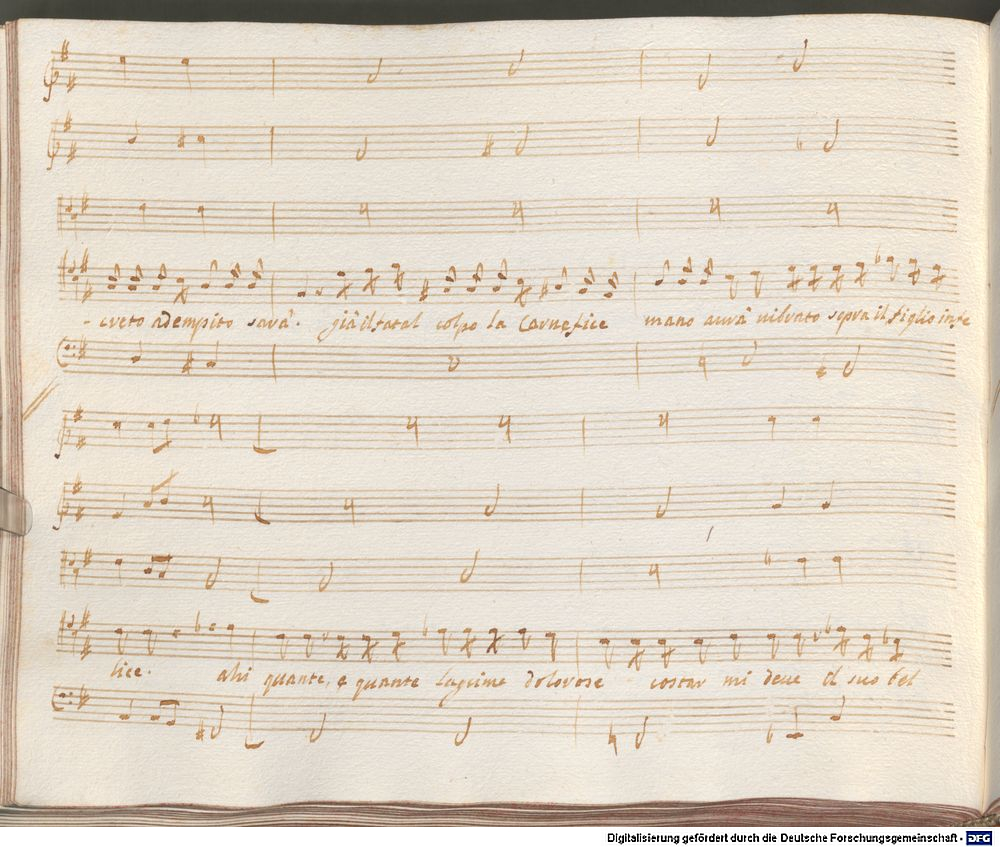 - creto adempito sarà. già il fatal colpo la Carnefice mano aurà uibrato sopra il figlio infe
lice. ahi quante, e quante lagrime dolorose costar mi deue il suo bel
Digitalisierung gefördert durch die Deutsche Forschungsgemeinschaft - DFG